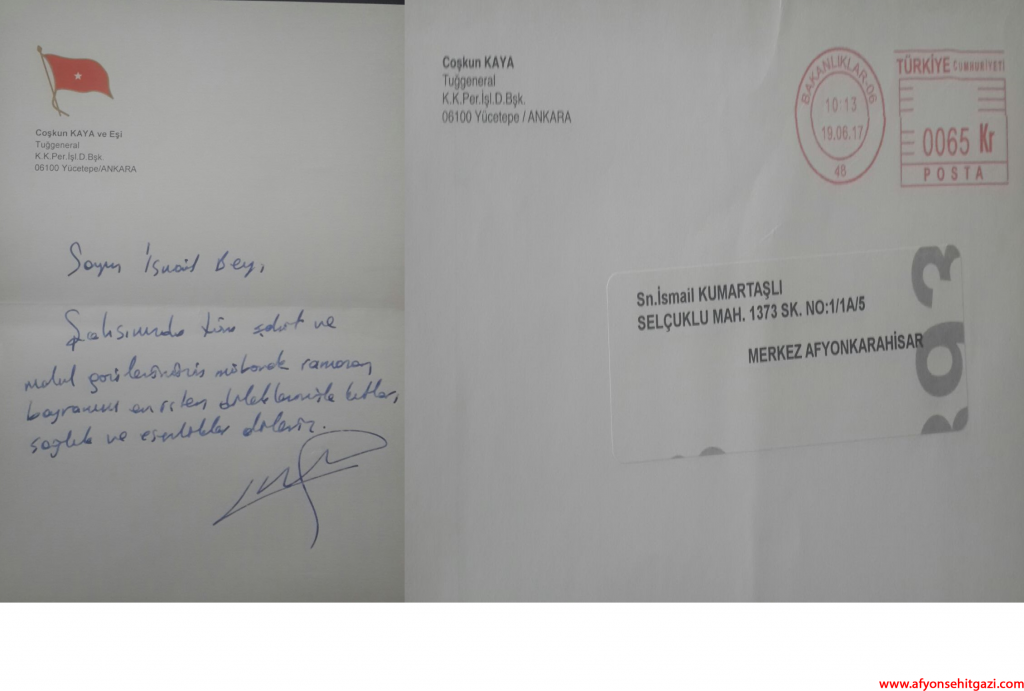 Coşkun KAYA ve Eşi
Tuğgeneral
K.K.Per.İşl.D.Bşk.
06100 Yücetepe/ANKARA
Sayın İsmail Bey,
Şahsınızda tüm şehit ve
malul gazilerimizin mübarek ramazan
bayramını en içten dileklerimizle kutlar,
sağlık ve esenlikler dileriz.
Coşkun KAYA
Tuğgeneral
K.K.Per.İşl.D.Bşk.
06100 Yücetepe / ANKARA
BAKANLIKLAR-06
10:13
19.06.17
48
TÜRKİYE CUMHURİYETİ
0065 Kr
POSTA
Sn.İsmail KUMARTAŞLI
SELÇUKLU MAH. 1373 SK. NO:1/1A/5
MERKEZ AFYONKARAHİSAR
www.afyonsehitgazi.com